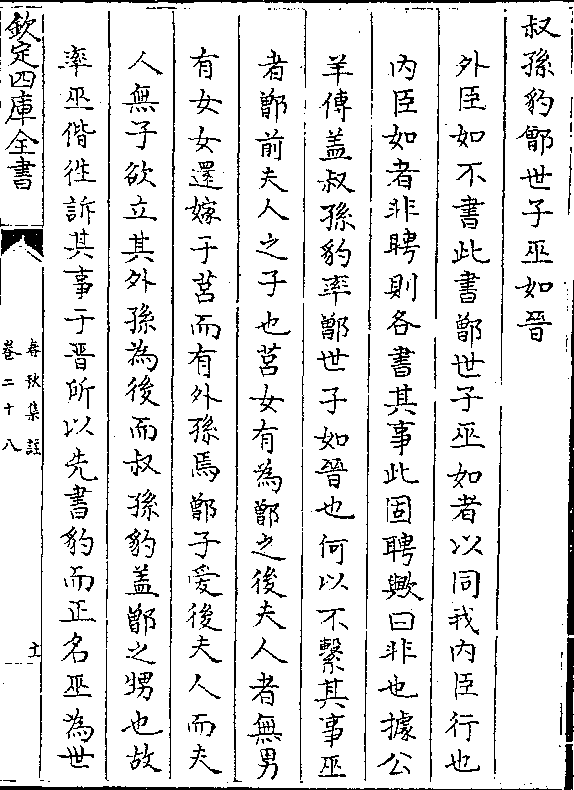 叔孫豹鄫世子巫如晉
外臣如不書此書鄫世子巫如者以同我内臣行也
内臣如者非聘則各書其事此固聘歟曰非也據公
羊傳盖叔孫豹率鄫世子如晉也何以不繫其事巫
者鄫前夫人之子也莒女有為鄫之後夫人者無男
有女女還嫁于莒而有外孫焉鄫子愛後夫人而夫
人無子欲立其外孫為後而叔孫豹盖鄫之甥也故
率巫偕徃訴其事于晋所以先書豹而正名巫為世
欽定四庫全書
春秋集註
卷二十八
十一